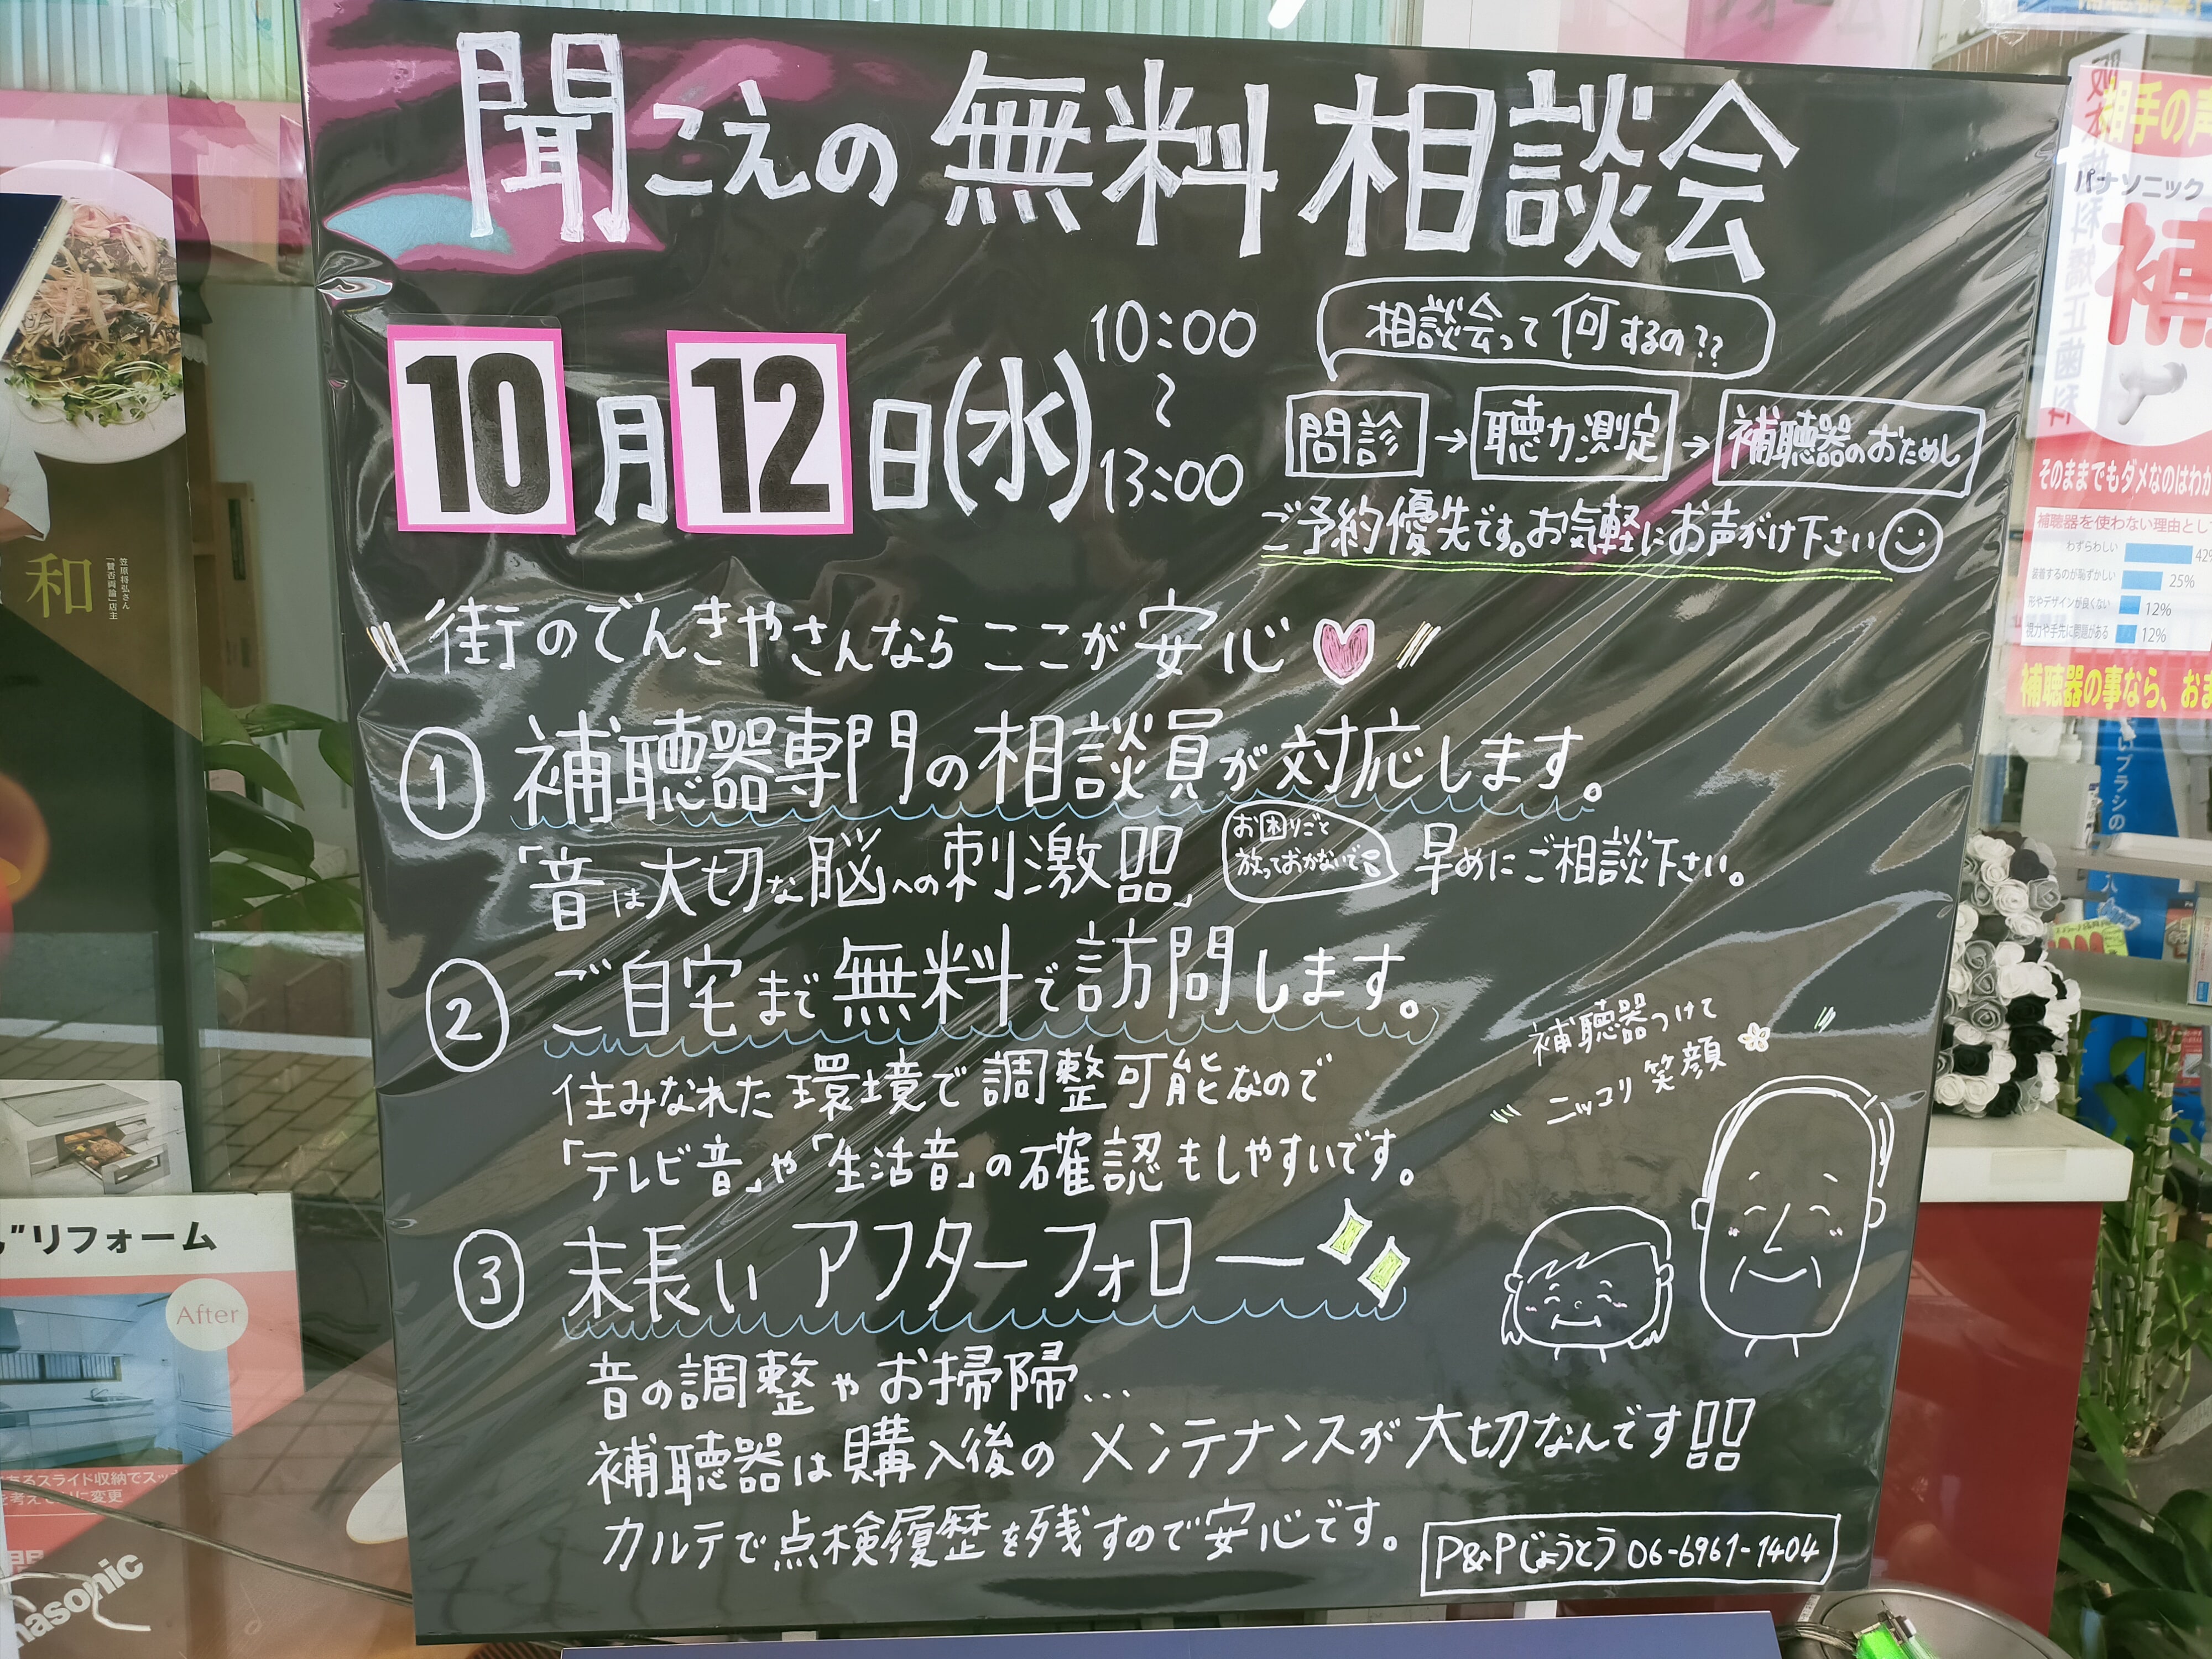 聞こえの無料相談会
10月12日(水)
10:00
〜
13:00
相談会って何するの??
問診→聴力測定→補聴器のおためし
ご予約優先です。お気軽にお声がけ下さい
街のでんきやさんなら ここが安心
① 補聴器専門の相談員が対応します。
「音は大切な脳への刺激!!」
お困りごと
放っておかないで
早めにご相談下さい。
② ご自宅まで無料で訪問します。
住みなれた環境で調整可能なので
「テレビ音」や「生活音」の確認もしやすいです。
補聴器つけて
ニッコリ笑顔
③ 末長い アフターフォロー
音の調整やお掃除...
補聴器は購入後のメンテナンスが大切なんです!!
カルテで点検履歴を残すので安心です。
P&Pじょうとう 06-6961-1404
和
笠原将弘さん
「賛否両論」店主
リフォーム
After
あるスライド収納でスッ
に変更
nasonic
相手の声
パナソニック
補
そのままでもダメなのはわか
補聴器を使わない理由とし
わずらわしい 42
装着するのが恥ずかしい 25%
形やデザインが良くない 12%
視力や手先に問題がある 12%
補聴器の事なら、おま
科矯正歯科
いブラシの